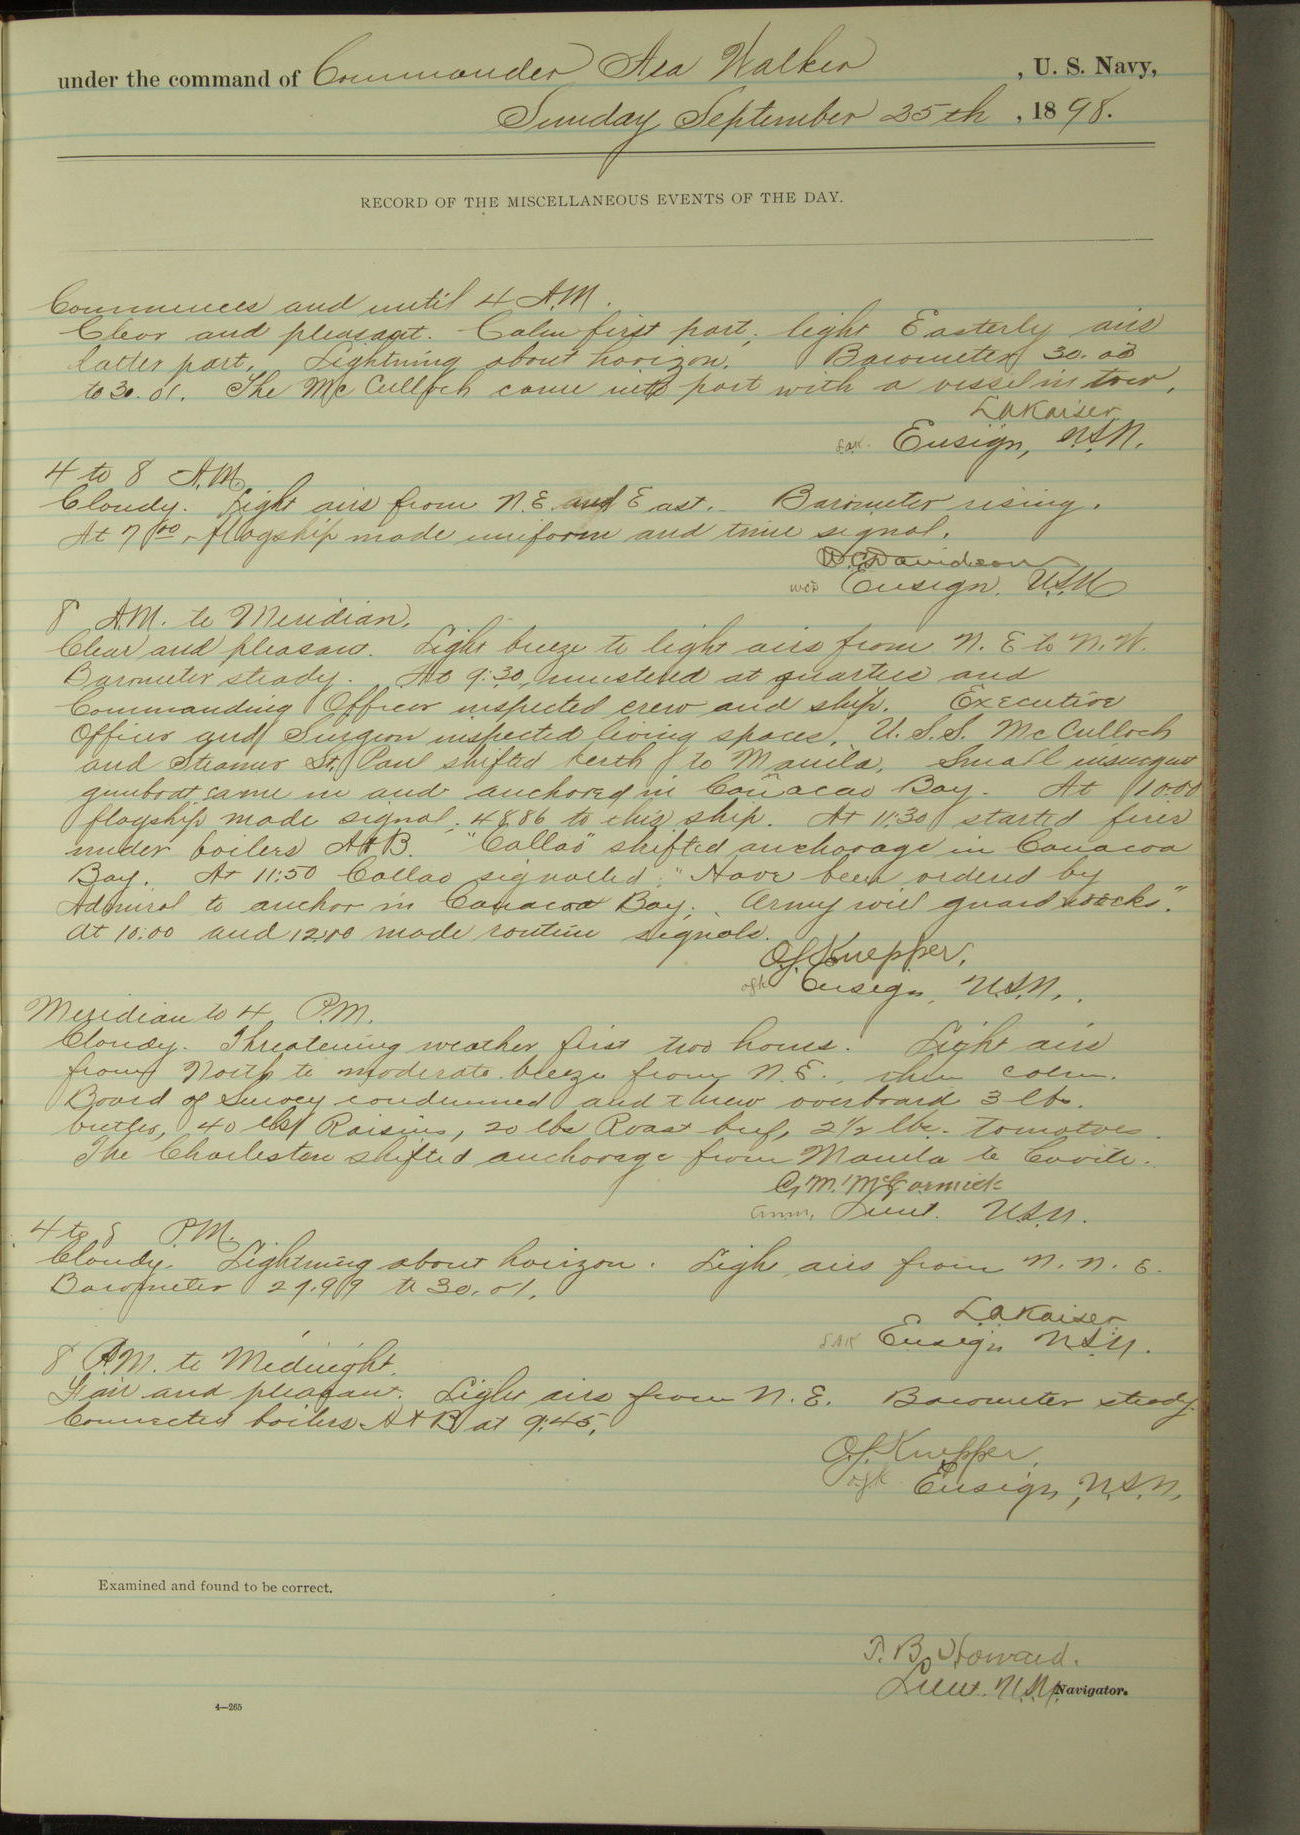 under the command of Commander Asa Walker, U. S. Navy,
Sunday September 25th, 1898.
RECORD OF THE MISCELLANEOUS EVENTS OF THE DAY.
Commences and until 4 A.M.
Clear and pleasant. Calm first part, light Easterly airs
latter part. Lightning about horizon. Barometer 30.03
to 30.01. The McCulloch came into port with a vessel in tow.
L A Kaiser
LAK. Ensign, U.S.N.
4 to 8 A.M.
Cloudy. Light airs from N.E. and East. Barometer rising.
At 7 00 flagship made uniform and time signal.
W.C. Davidson
WCD Ensign, U.S.N
8 A.M. to Meridian.
Clear and pleasant. Light breeze to light airs from N. E to N.W.
Barometer steady. At 9:30 mustered at quarters and
Commanding Officer inspected crew and ship. Executive
Officer and Surgeon inspected living spaces. U.S.S. McCulloch
and Steamer St. Paul shifted berth to Manila. Small insurgent
gunboat came in and anchored in Cañacao Bay. At 10:00
flagship made signal, 4886 to this ship. At 11:30 started fires
under boilers A & B. "Callao" shifted anchorage in Canacoa
Bay. At 11:50 Callao signalled: "Have been ordered by
Admiral to anchor in Canacoa Bay; Army will guard wrecks."
At 10:00 and 12:00 made routine signals.
O.J. Knepper,
OJK Ensign, U.S.N.
Meridian to 4 P.M.
Cloudy. Threatening weather first two hours. Light airs
from North to moderate breeze from N.E., then calm.
Board of Survey condemned and threw overboard 3 lbs.
butter, 40 lbs Raisins, 20 lbs Roast beef, 2½ lbs. tomatoes.
The Charleston shifted anchorage from Manila to Cavite.
G.M. McCormick
GMM. Lieut. U.S.N.
4 to 8 P.M.
Cloudy. Lightning about horizon. Ligh airs from N. N. E.
Barometer 29.99 to 30.01.
L A Kaiser
LAK Ensign U.S.N.
8 P.M. to Midnight.
Fair and pleasant. Light airs from N.E. Barometer steady.
Connected boilers A & B at 9:45.
O.J. Knepper,
OJK Ensign, U.S.N.
Examined and found to be correct.
T. B. Howard.
Lieut. U.S.N. Navigator.
4—265